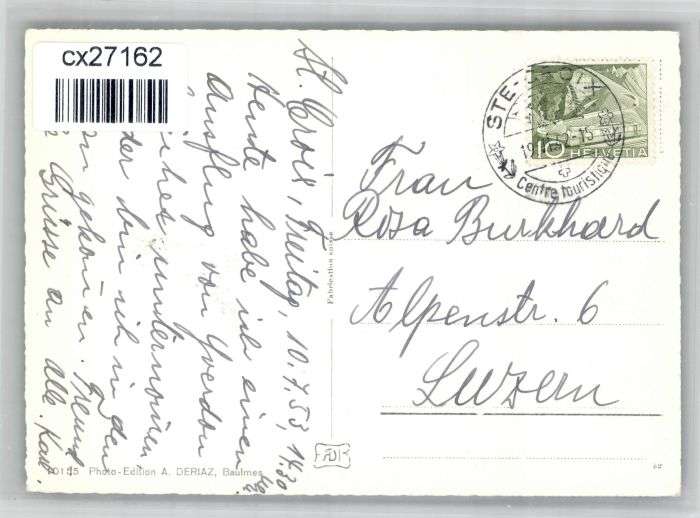 cx27162
St. Croix, Freitag, 10.7.53, 14.30
Heute habe ich einen
Ausflug von Yverdon
unternommen,
bin ich in den
gekommen. Freund-
Grüsse an alle. Karl
STE-CROIX
Centre touristique
10 HELVETIA
Frau
Rosa Burkhard
Alpenstr. 6
Luzern
Fabrication suisse
Photo-Edition A. DERIAZ, Baulmes